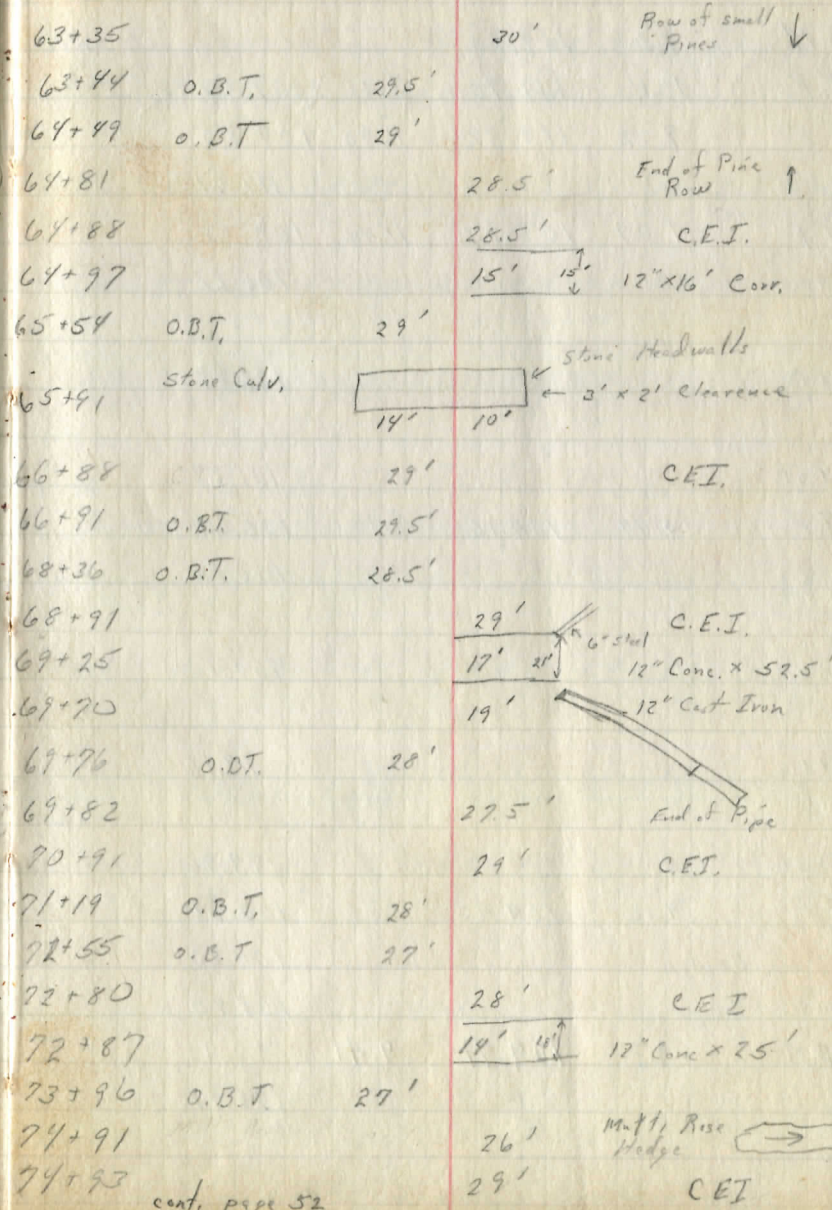 63+35 30' Row of small
Pines ↓
63+44 O.B.T. 29.5'
64+49 O.B.T 29'
64+81 28.5' End of Pine
Row ↑
64+88 28.5' C.E.I.
64+97 15' 15' 12"x16' Corr.
65+54 O.B.T. 29'
Stone Headwalls
65+91 Stone Culv. ← 3' x 2' Clearence
14' 10'
66+88 29' CEI.
66+91 O.B.T. 29.5'
68+36 O.B.T. 28.5'
68+91 29' 6" Steel C.E.I.
69+25 17' 21' 12" Conc. x 52.5'
69+70 19' 12" Cast Iron
69+76 O.B.T. 28'
69+82 27.5' End of Pipe
70+91 29' C.E.I.
71+19 O.B.T. 28'
72+55 O.B.T 27'
72+80 28' C E I
72+87 14' 12" Conc x 25'
73+96 O.B.T. 27'
74+91 26' Multi Rose
Hedge →
74+93 29' CEI
cont. page 52